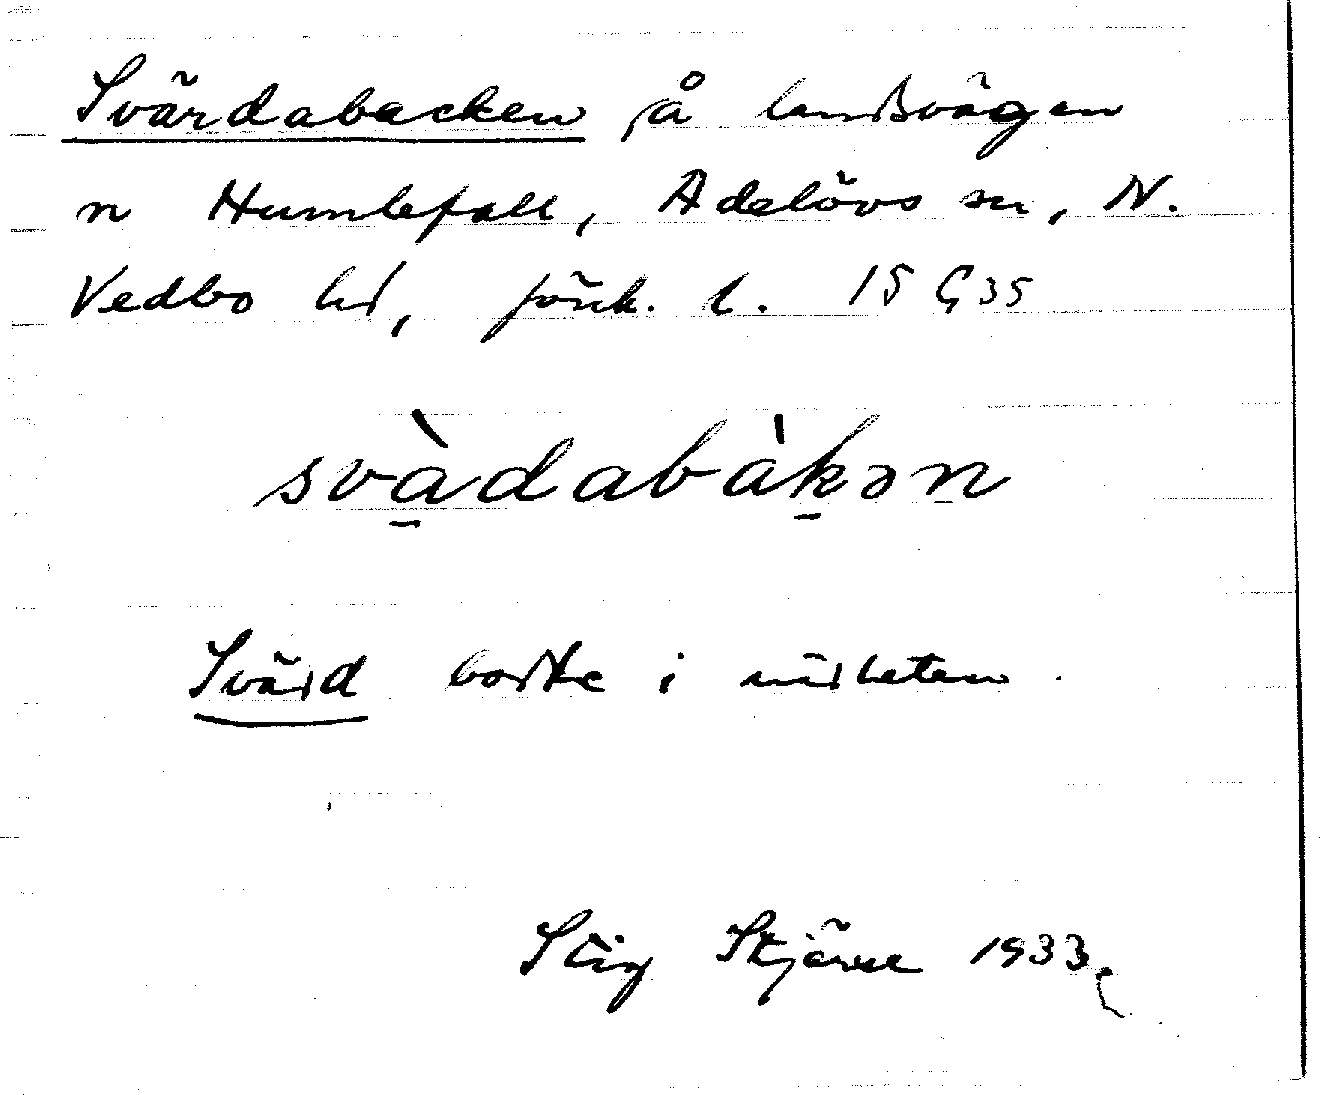 Svärdabacken på landsvägen
n Humlefall, Adelövs sn, N.
Vedbo hd, Jönk. l. 15 G 35
svàdabàkən
Svärd bodde i närheten.
Stig 1933